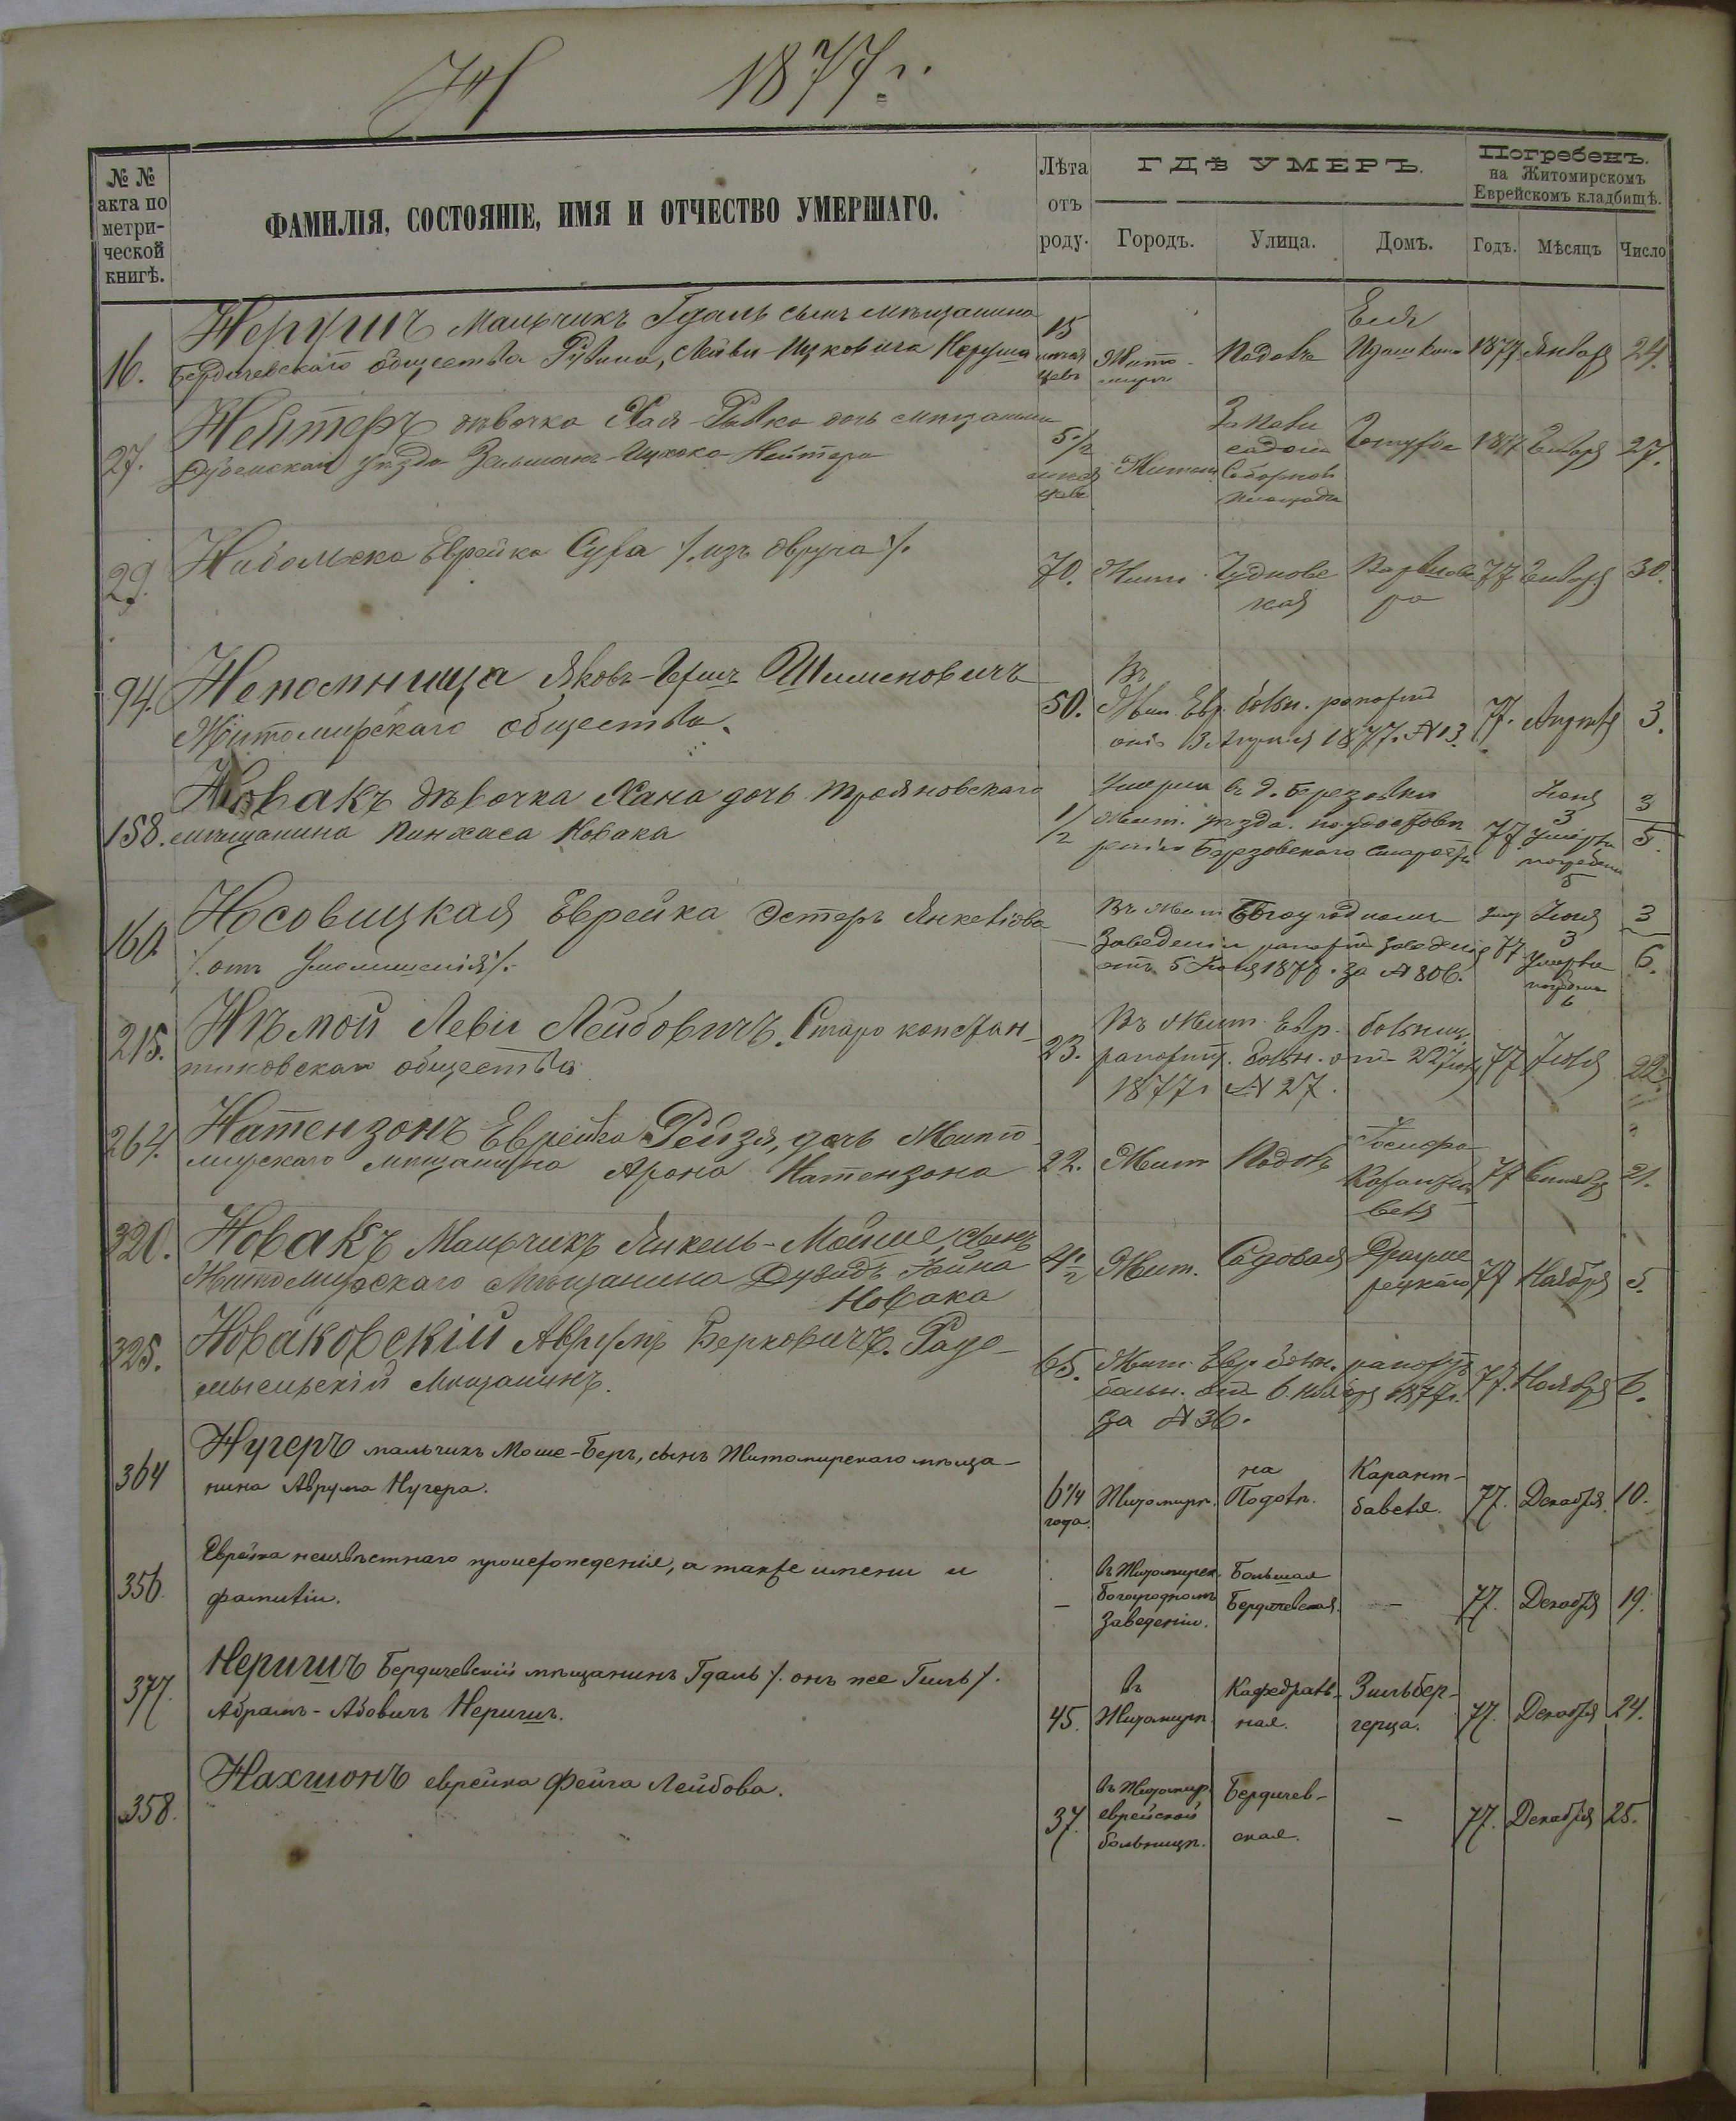 Н 1877 г.
№ №
акта по
метри-
ческой
книгѣ.
ФАМИЛІЯ, СОСТОЯНІЕ, ИМЯ И ОТЧЕСТВО УМЕРШАГО.
Лѣта
отъ
роду.
ГДѢ УМЕРЪ.
Городъ. Улица. Домъ.
Погребенъ.
на Житомирскомъ
Еврейскомъ кладбищѣ.
Годъ. Мѣсяцъ Число
16. Нерушъ Мальчикъ Гдаль сынъ мѣщанина
Бердичевскаго общества Рувина, Лейви-Ицковича Неруша
15 Жито-миръ 1877 Января 24.
27. Нейтеръ дѣвочка Хая-Ривка дочь мѣщанина
уѣзда Зельмана-Ицкока Нейтера
5 1/2 Житом Соборной площади 1877 Января 27.
29. Еврейка Сура /.изъ Овруча/.
70. Жит. Чуднов ская 77 Января 30.
94. Непомнища Яковъ-Гершъ Шименовичъ
Житомирскаго общества.
50. Въ
Жит. Евр. больн. рапортъ
отъ 3 Августа 1877. № 13. 77. Августа 3.
158. Новакъ дѣвочка Хана дочь Трояновскаго
мѣщанина Пинхаса Новака
1/2 Умерла въ д. Березовки
Жит. уѣзда. по удостовѣ
ренію Березовскаго Старосты 77. Іюня 3
3 умерла
погребена 5
5.
160. Носовицкая Еврейка Эстеръ Янкелова
/.отъ
Въ Жит Богоугодномъ
Заведеніи рапортъ заведенія
отъ 5 Іюня 1877. за № 806. 77 Іюня 3
3 Умерла
погребена 6
6.
215. Нѣмой Левіи Лейбовичъ. Старо констан-
тиновскаго общества
23. Въ Жит. Евр. больниц.
рапортъ. больн. отъ 22 Іюля
1877 г № 27. 77 Іюля 22.
264. Натензонъ Еврейка Рейзя, дочь Жито-
мирскаго мѣщанина Арона Натензона
22. Жит Подолъ 77 21.
320. Новакъ Мальчикъ Янкель-Мойше, сынъ
Житомирскаго Мѣщанина Дувидъ Іойна
Новака
4 1/2 Жит. Садовая 77 Ноября 5.
325. Новаковскій Аврумъ Берковичъ. Радо-
мысльскій Мѣщанинъ.
65. Жит. Евр. больн. рапортъ
больн. отъ 6 Ноября 1877 г.
за № 36. 77. Ноября 6.
364 Нугеръ мальчикъ Моше-Беръ, сынъ Житомирскаго мѣща-
нина Аврума Нугера.
6 1/4
года. Житомиръ. на
Подолѣ. Карант-
бавеля. 77. Декабря 10.
356. Еврейка неизвѣстнаго происхожденія, а также имени и
фамиліи.
— въ Житомирск.
богоугодномъ
Заведеніи. Большая
Бердичевская. — 77. Декабря 19.
377. Неригшъ Бердичевскій мѣщанинъ Гдаль /. онъ же Гиль /.
Абрамъ-Абовичъ Неригшъ.
45. въ
Житомирѣ. Кафедраль-
ная. Зильбер-
герца. 77. Декабря 24.
358. Нахшонъ еврейка Фейга Лейбова.
37. въ Житомир.
еврейской
больницѣ. Бердичев-
ская. — 77. Декабря 25.